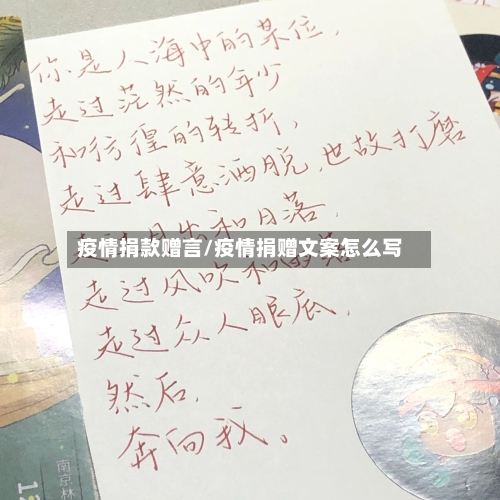 你是人海中的某位，
走过茫然的年少
和彷徨的转折，
走过肆意洒脱，也故打磨
和日落，
疫情捐款赠言/疫情捐赠文案怎么写
走过风吹和
走过众人眼底，
然后，
奔向我。
南京林